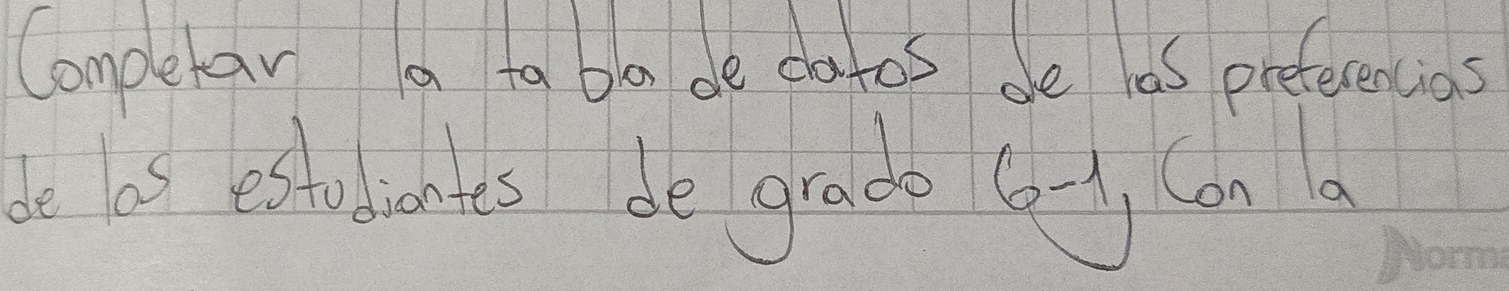 Completar la tabla de datos de las preferencias
de los estudiantes de grado 6-1, Con la
Norma